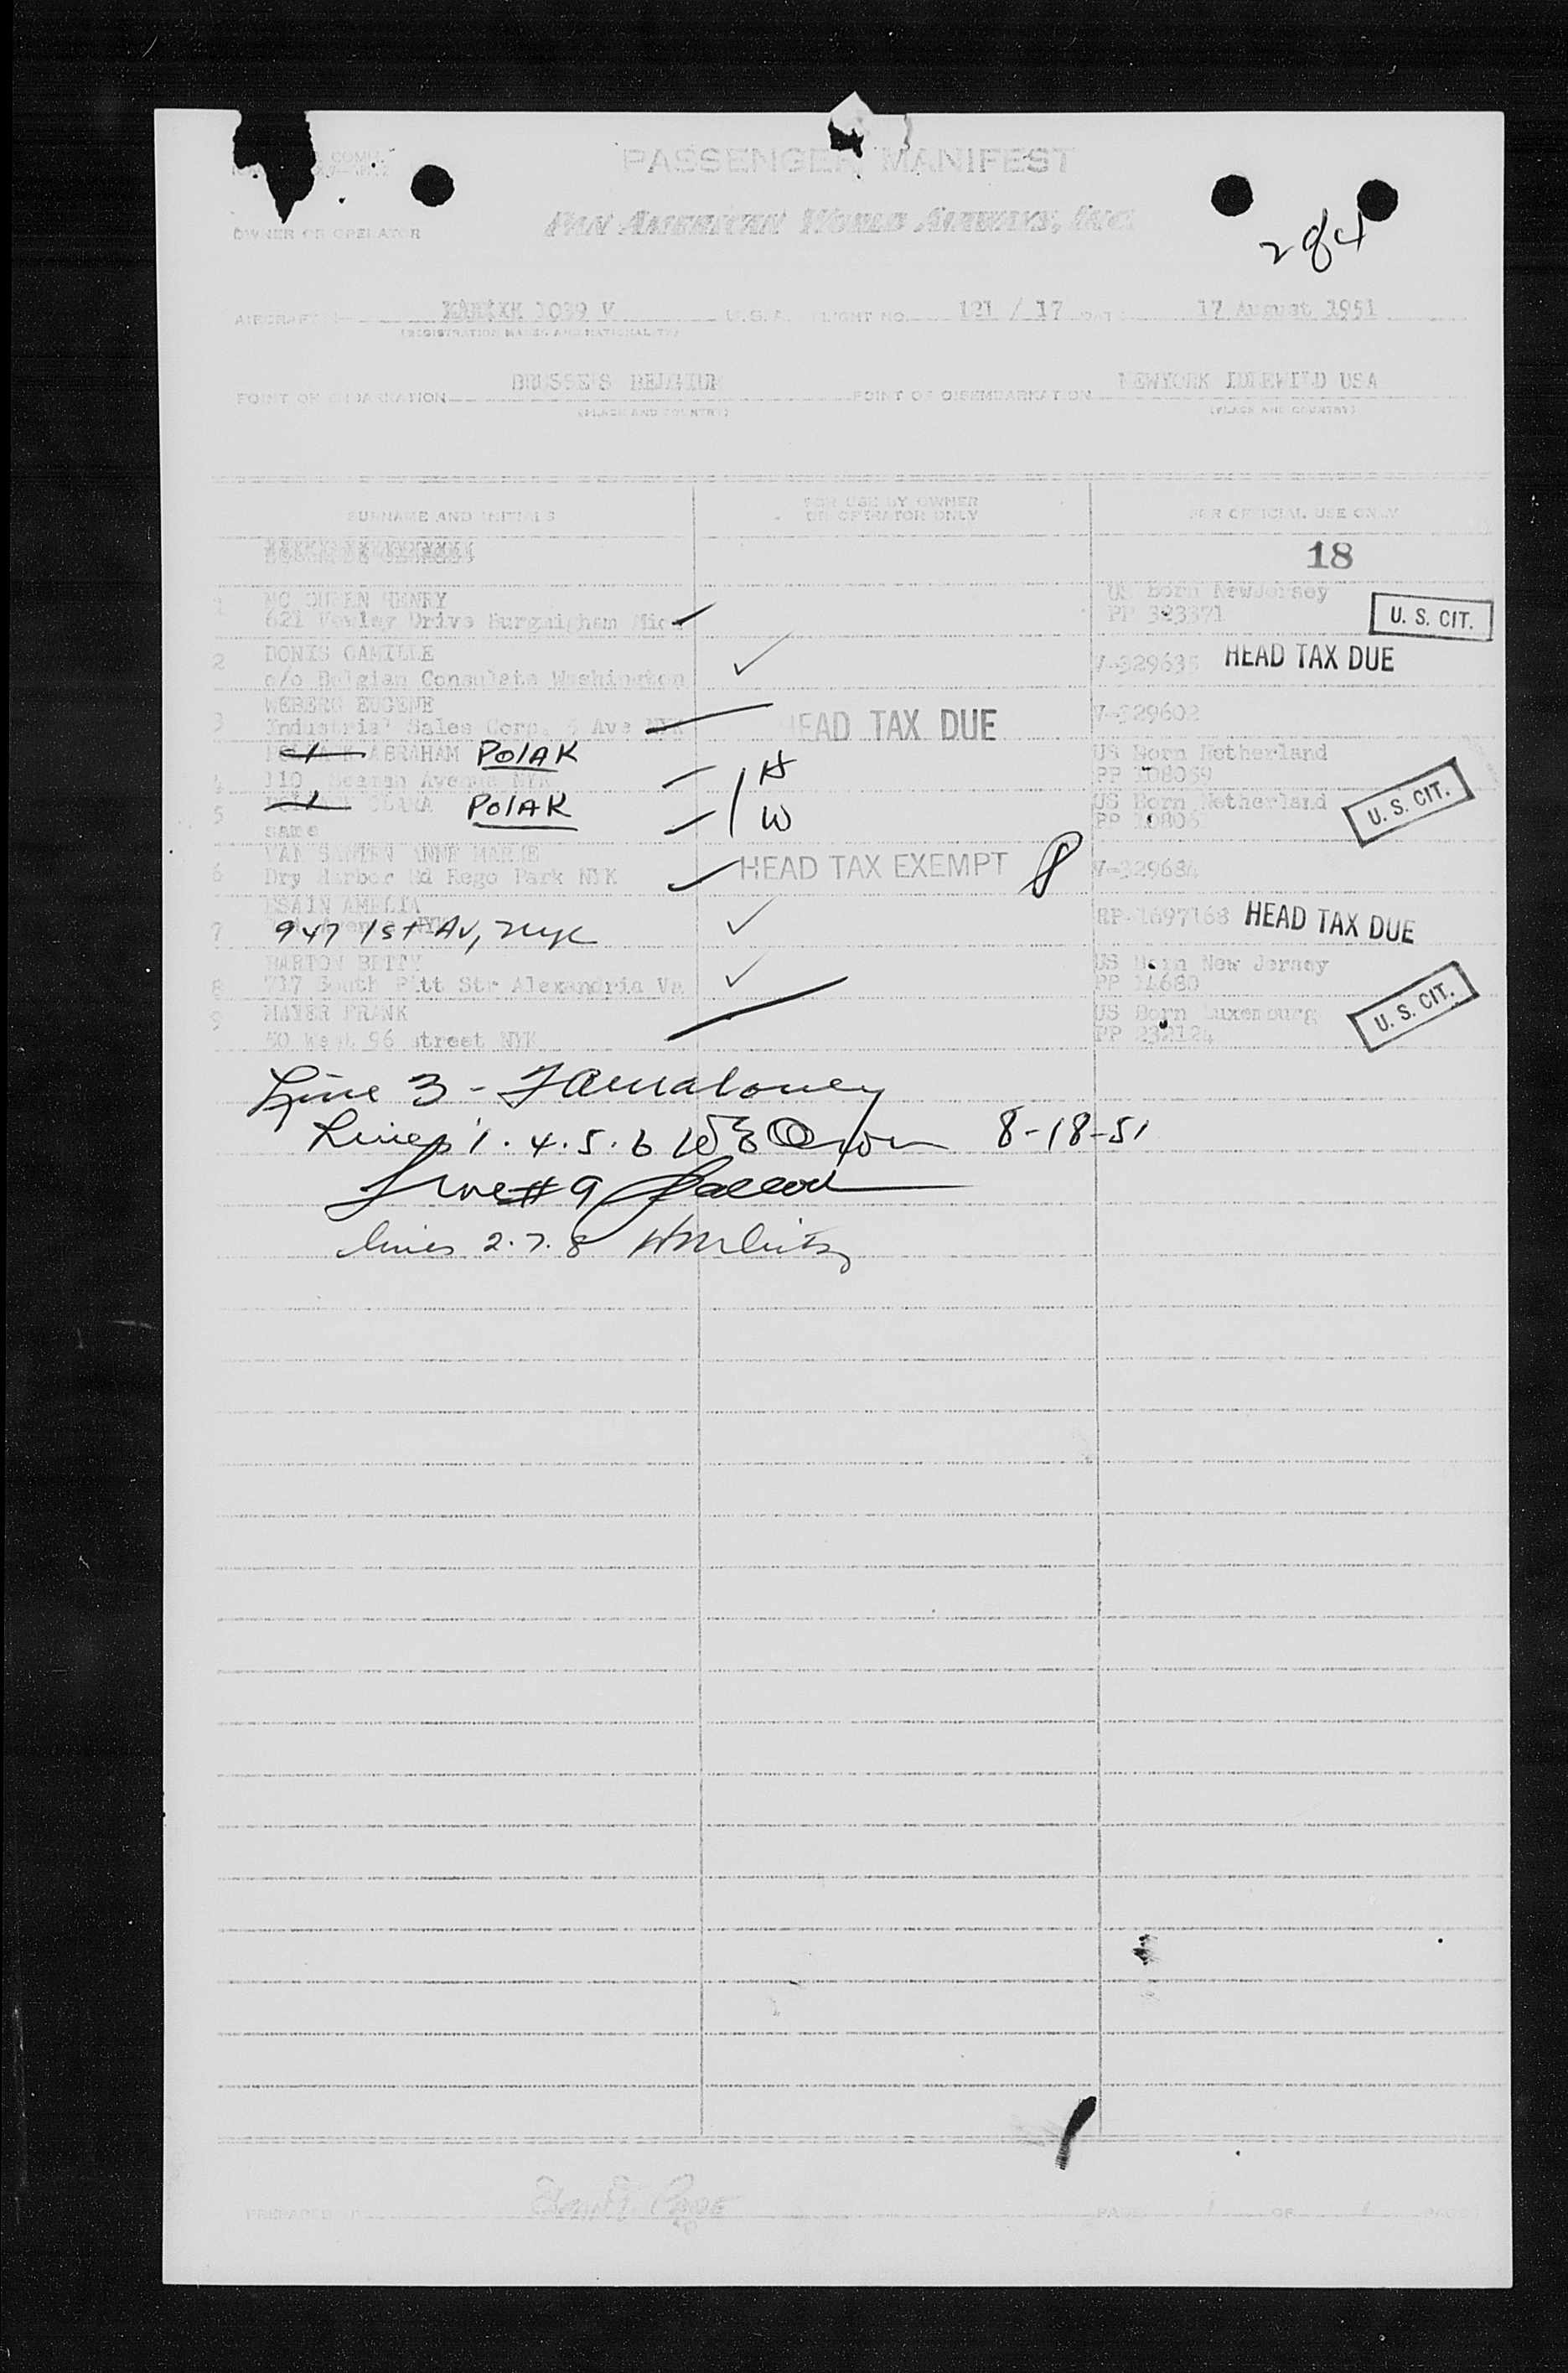 PASSENGER MANIFEST
PAN AMERICAN WORLD AIRWAYS, INC.
OWNER OR OPERATOR
284
AIRCRAFT 1039 V U.S.A. FLIGHT NO. 121 / 17 DATE 17 August 1951
(REGISTRATION MARKS AND NATIONALITY)
POINT OF EMBARKATION BRUSSELS BELGIUM POINT OF DISEMBARKATION NEWYORK IDLEWILD USA
(PLACE AND COUNTRY) (PLACE AND COUNTRY)
SURNAME AND INITIALS FOR USE BY OWNER OR OPERATOR ONLY FOR OFFICIAL USE ONLY
18
1 MC QUEEN HENRY US Born NewJersey
621 Drive PP 323371 U. S. CIT.
2 DONIS CAMILLE V-329635 HEAD TAX DUE
c/o Belgian Consulate Washington
3 WEBERG EUGENE V-329602
Industrial Sales Corp. 5 Ave NYK HEAD TAX DUE
ABRAHAM POlAK H US Born Netherland
4 110 Seaman Avenue NYK PP 108059
5 CLARA POlAK W US Born Netherland U. S. CIT.
same PP
VAN SANTEN ANNE MARIE
6 Dry Harbor Rd Rego Park NYK HEAD TAX EXEMPT V-329684
ESAIN AMELIA
7 947 1st Av, nyc RP-1697168 HEAD TAX DUE
BARTON BETTY US Born New Jersey
8 717 South Pitt Str Alexandria Va PP 14680
9 MAYER FRANK US Born Luxembourg U. S. CIT.
50 West 96 street NYK PP 232124
Line 3 -
Lines 1. 4. 5. 6 8-18-51
Line # 9
lines 2. 7. 8
PREPARED BY PAGE 1 OF PAGES